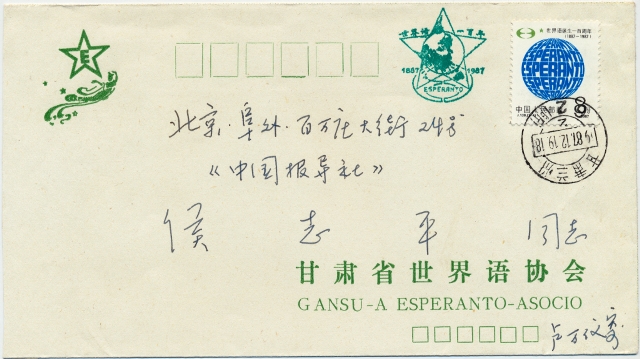 E
世界语 一百年
1887 1987
ESPERANTO
世界语诞生一百周年
(1887-1987)
ESPERANTO
中国人民邮政
8
87.12.19.18
甘肃兰州
北京·阜外·百万庄大街24号
《中国报导社》
侯志平 同志
甘肃省世界语协会
GANSU-A ESPERANTO-ASOCIO